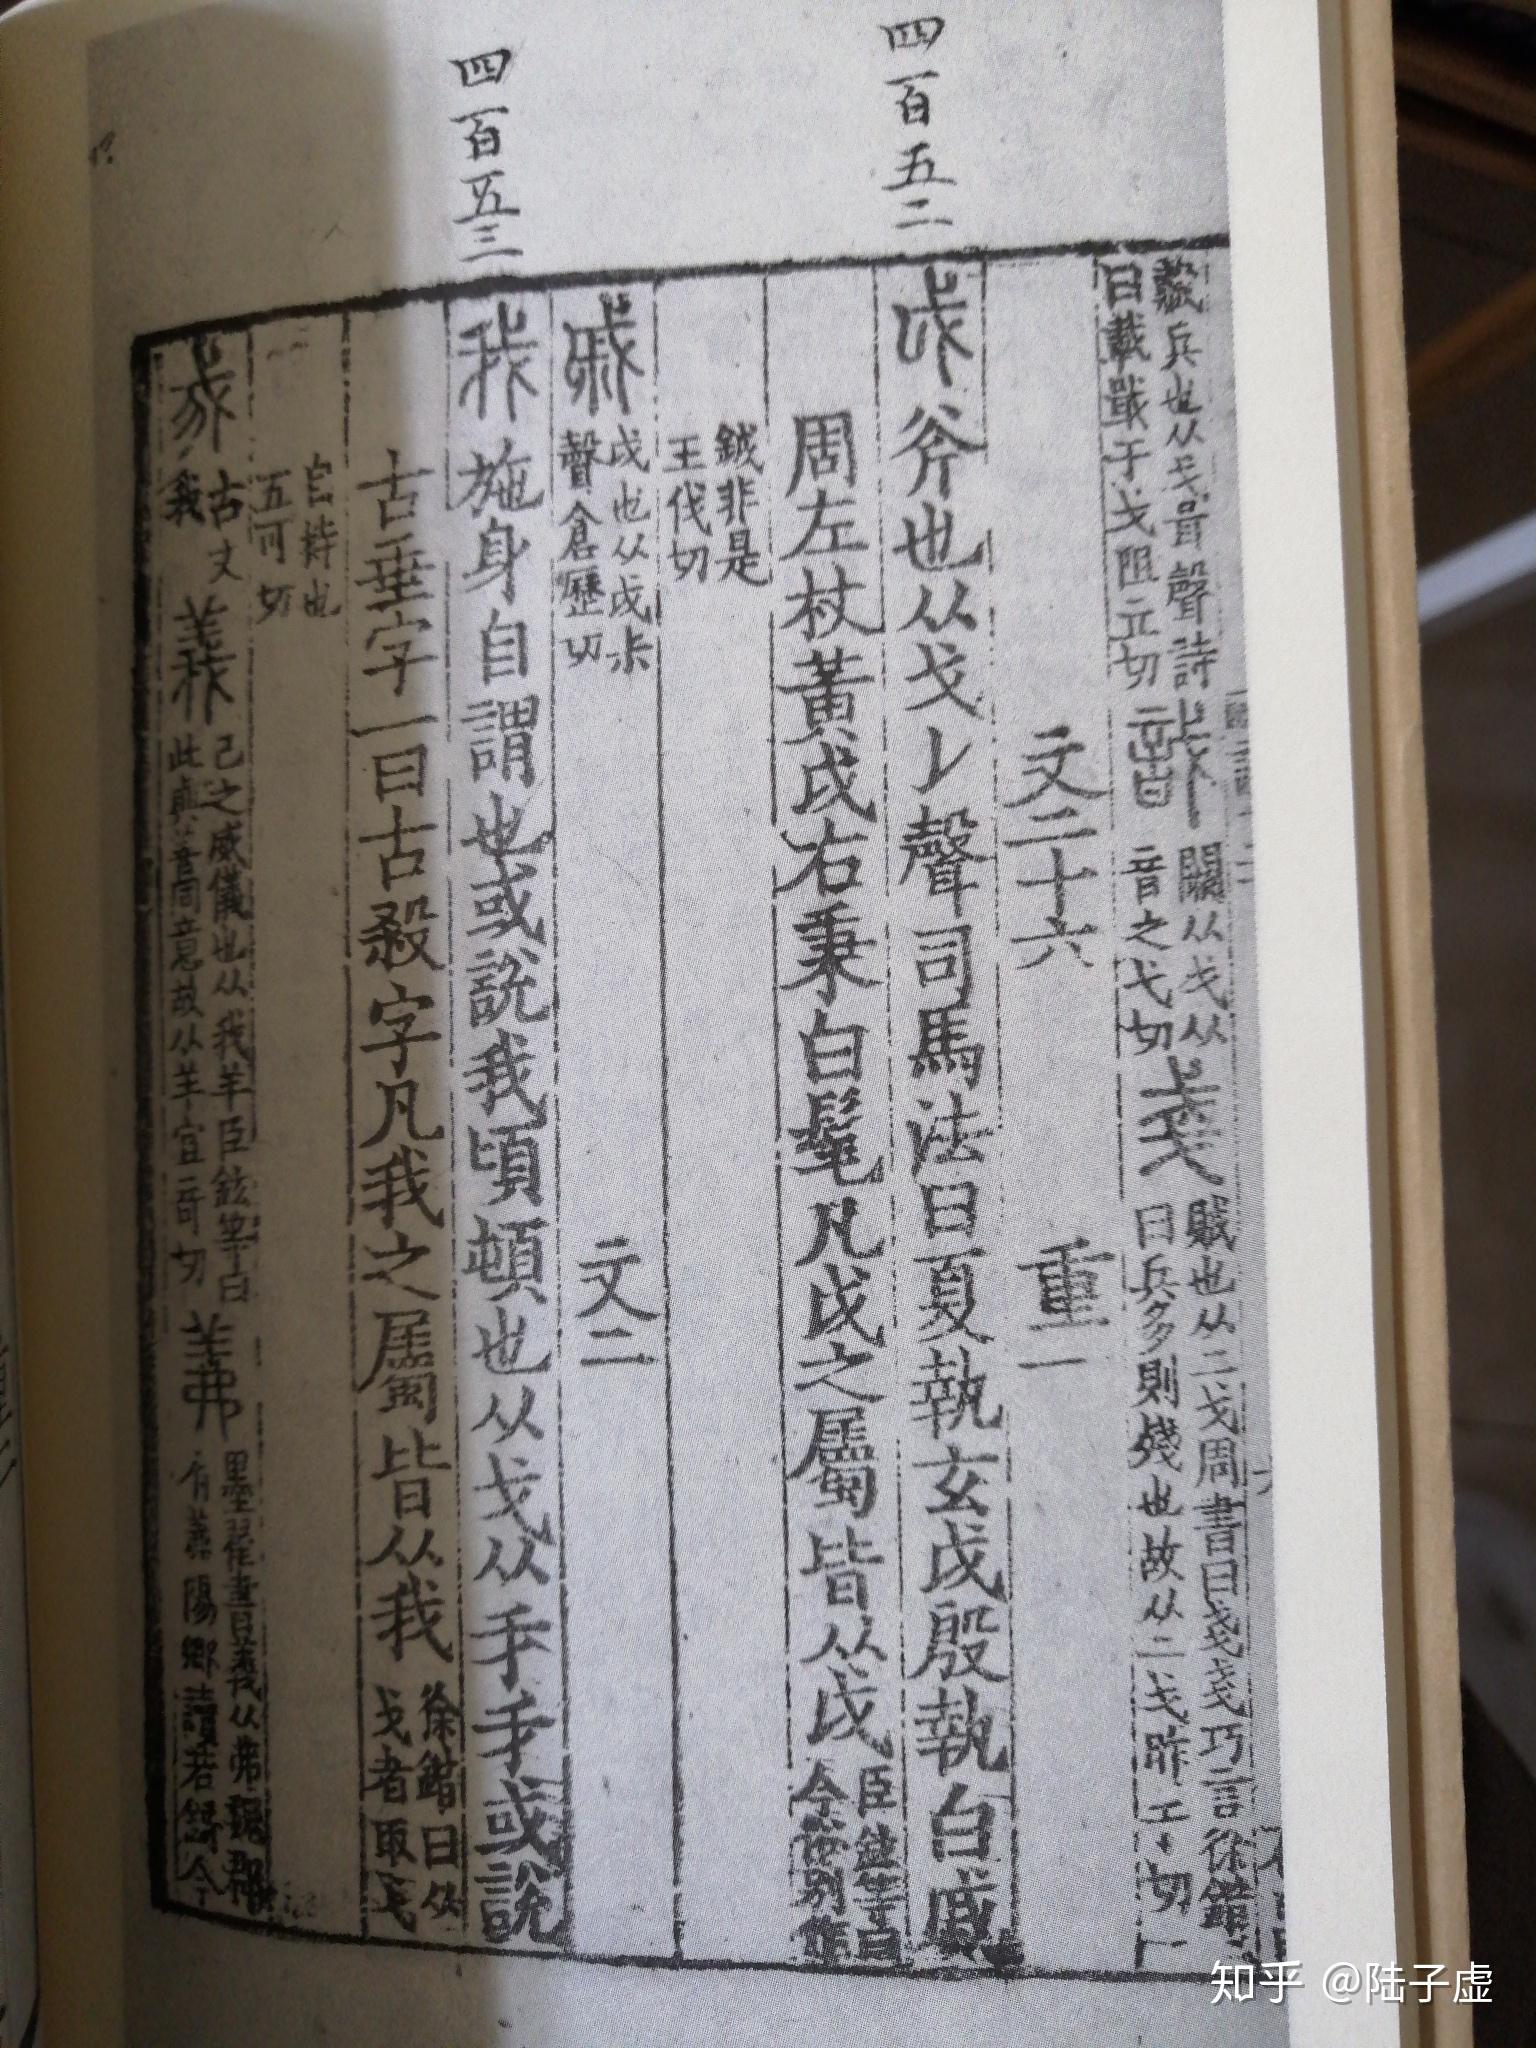 四百五二
四百五三
兵也从戈咠聲詩
曰載戢干戈阻立切
闕从戈从
音之弋切
賊也从二戈周書曰戔戔巧言徐鍇
曰兵多則殘也故从二戈昨干切
文二十六 重一
戉 斧也从戈𠄌聲司馬法曰夏執玄戉殷執白戚
周左杖黃戉右秉白髦凡戉之屬皆从戉
臣鉉等曰
今俗別作
鉞非是
王伐切
戚
戉也从戉尗
聲倉歷切
文二
我 施身自謂也或說我頃頓也从戈从手手或說
古垂字一曰古殺字凡我之屬皆从我
徐鍇曰从
戈者取戈
自持也
五可切
古文
我
義
己之威儀也从我羊臣鉉等曰
此與善同意故从羊宜奇切
墨翟書義从弗魏郡
有羛陽鄉讀若錡今
知乎 @陆子虚